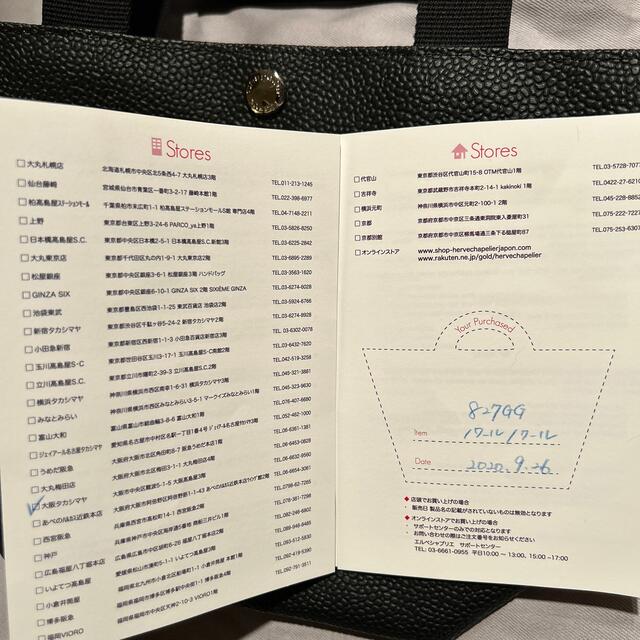 Stores
大丸札幌店 北海道札幌市中央区北5条西4-7 大丸札幌店3階 TEL.011-213-1245
仙台藤崎 宮城県仙台市青葉区一番町3-2-17 藤崎本館1階 TEL.022-398-6977
柏高島屋ステーションモール 千葉県柏市末広町1-1 柏高島屋ステーションモールS館 専門店4階 TEL.04-7148-2211
上野 東京都台東区上野3-24-6 PARCO_ya上野1階 TEL.03-5826-8250
日本橋高島屋S.C. 東京都中央区日本橋2-5-1 日本橋高島屋S.C.新館3階 TEL.03-6225-2842
大丸東京店 東京都千代田区丸の内1-9-1 大丸東京店2階 TEL.03-6895-2289
松屋銀座 東京都中央区銀座3-6-1 松屋銀座3階 ハンドバッグ TEL.03-3563-1620
GINZA SIX 東京都中央区銀座6-10-1 GINZA SIX 2階 SIXIÈME GINZA TEL.03-6274-6028
池袋東武 東京都豊島区西池袋1-1-25 東武百貨店 池袋店2階 TEL.03-5924-6766
新宿タカシマヤ 東京都渋谷区千駄ヶ谷5-24-2 新宿タカシマヤ2階 TEL.03-6274-8928
小田急新宿 東京都新宿区西新宿1-1-3 小田急百貨店新宿店3階 TEL.03-6302-0078
玉川高島屋S・C 東京都世田谷区玉川3-17-1 玉川高島屋S・C南館2階 TEL.03-6432-7620
立川高島屋S.C. 東京都立川市曙町2-39-3 立川高島屋S.C.2階 TEL.042-519-3258
横浜タカシマヤ 神奈川県横浜市西区南幸1-6-31 横浜タカシマヤ3階 TEL.045-321-3881
みなとみらい 神奈川県横浜市西区みなとみらい3-5-1 マークイズみなとみらい1階 TEL.045-323-9630
富山大和 富山県富山市総曲輪3-8-6 富山大和1階 TEL.076-407-6680
ジェイアール名古屋タカシマヤ 愛知県名古屋市中村区名駅一丁目1番4号 TEL.052-462-1000
うめだ阪急 大阪府大阪市北区角田町8-7 阪急うめだ本店1階 TEL.06-6361-1381
大丸梅田店 大阪府大阪市北区梅田3-1-1 大丸梅田店4階 TEL.06-6453-0628
大阪タカシマヤ 大阪府大阪市中央区難波5-1-5 大阪タカシマヤ3階
あべのハルカス近鉄本店 大阪府大阪市阿倍野区阿倍野筋1-1-43
西宮阪急 兵庫県西宮市高松町14-1 西宮阪急2階
神戸
広島福屋八丁堀本店
いよてつ高島屋
小倉井筒屋
博多阪急
福岡VIORO 福岡県福岡市中央区天神2-10-3 VIORO1階
Stores
代官山 東京都渋谷区代官山町15-8 OTM代官山1階 TEL.03-5728-707
吉祥寺 東京都武蔵野市吉祥寺本町2-14-1 kakinoki 1階 TEL.0422-27-621
横浜元町 神奈川県横浜市中区元町2-100-1 2階 TEL.045-228-722
京都 京都府京都市中京区三条通東洞院東入菱屋町31 TEL.075-222-188
京都別館 京都府京都市中京区柳馬場通三条下る槌屋町87 TEL.075-253-6307
オンラインストア www.shop-hervechapelierjapon.com
www.rakuten.ne.jp/gold/hervechapelier
Your Purchased
827GG
Item ノワール/ノワール
Date 2020.9.26
◆ 店頭でお買い上げの場合
・ 販売日 製品名の記載がされていないものは無効となります
◆ オンラインストアでお買い上げの場合
・ サポートセンターのみでの対応となります
・ お問い合わせの際はご注文番号をお知らせください
エルベシャプリエ サポートセンター
TEL: 03-6661-0955 平日10:00 ~ 13:00, 15:00 ~17:00